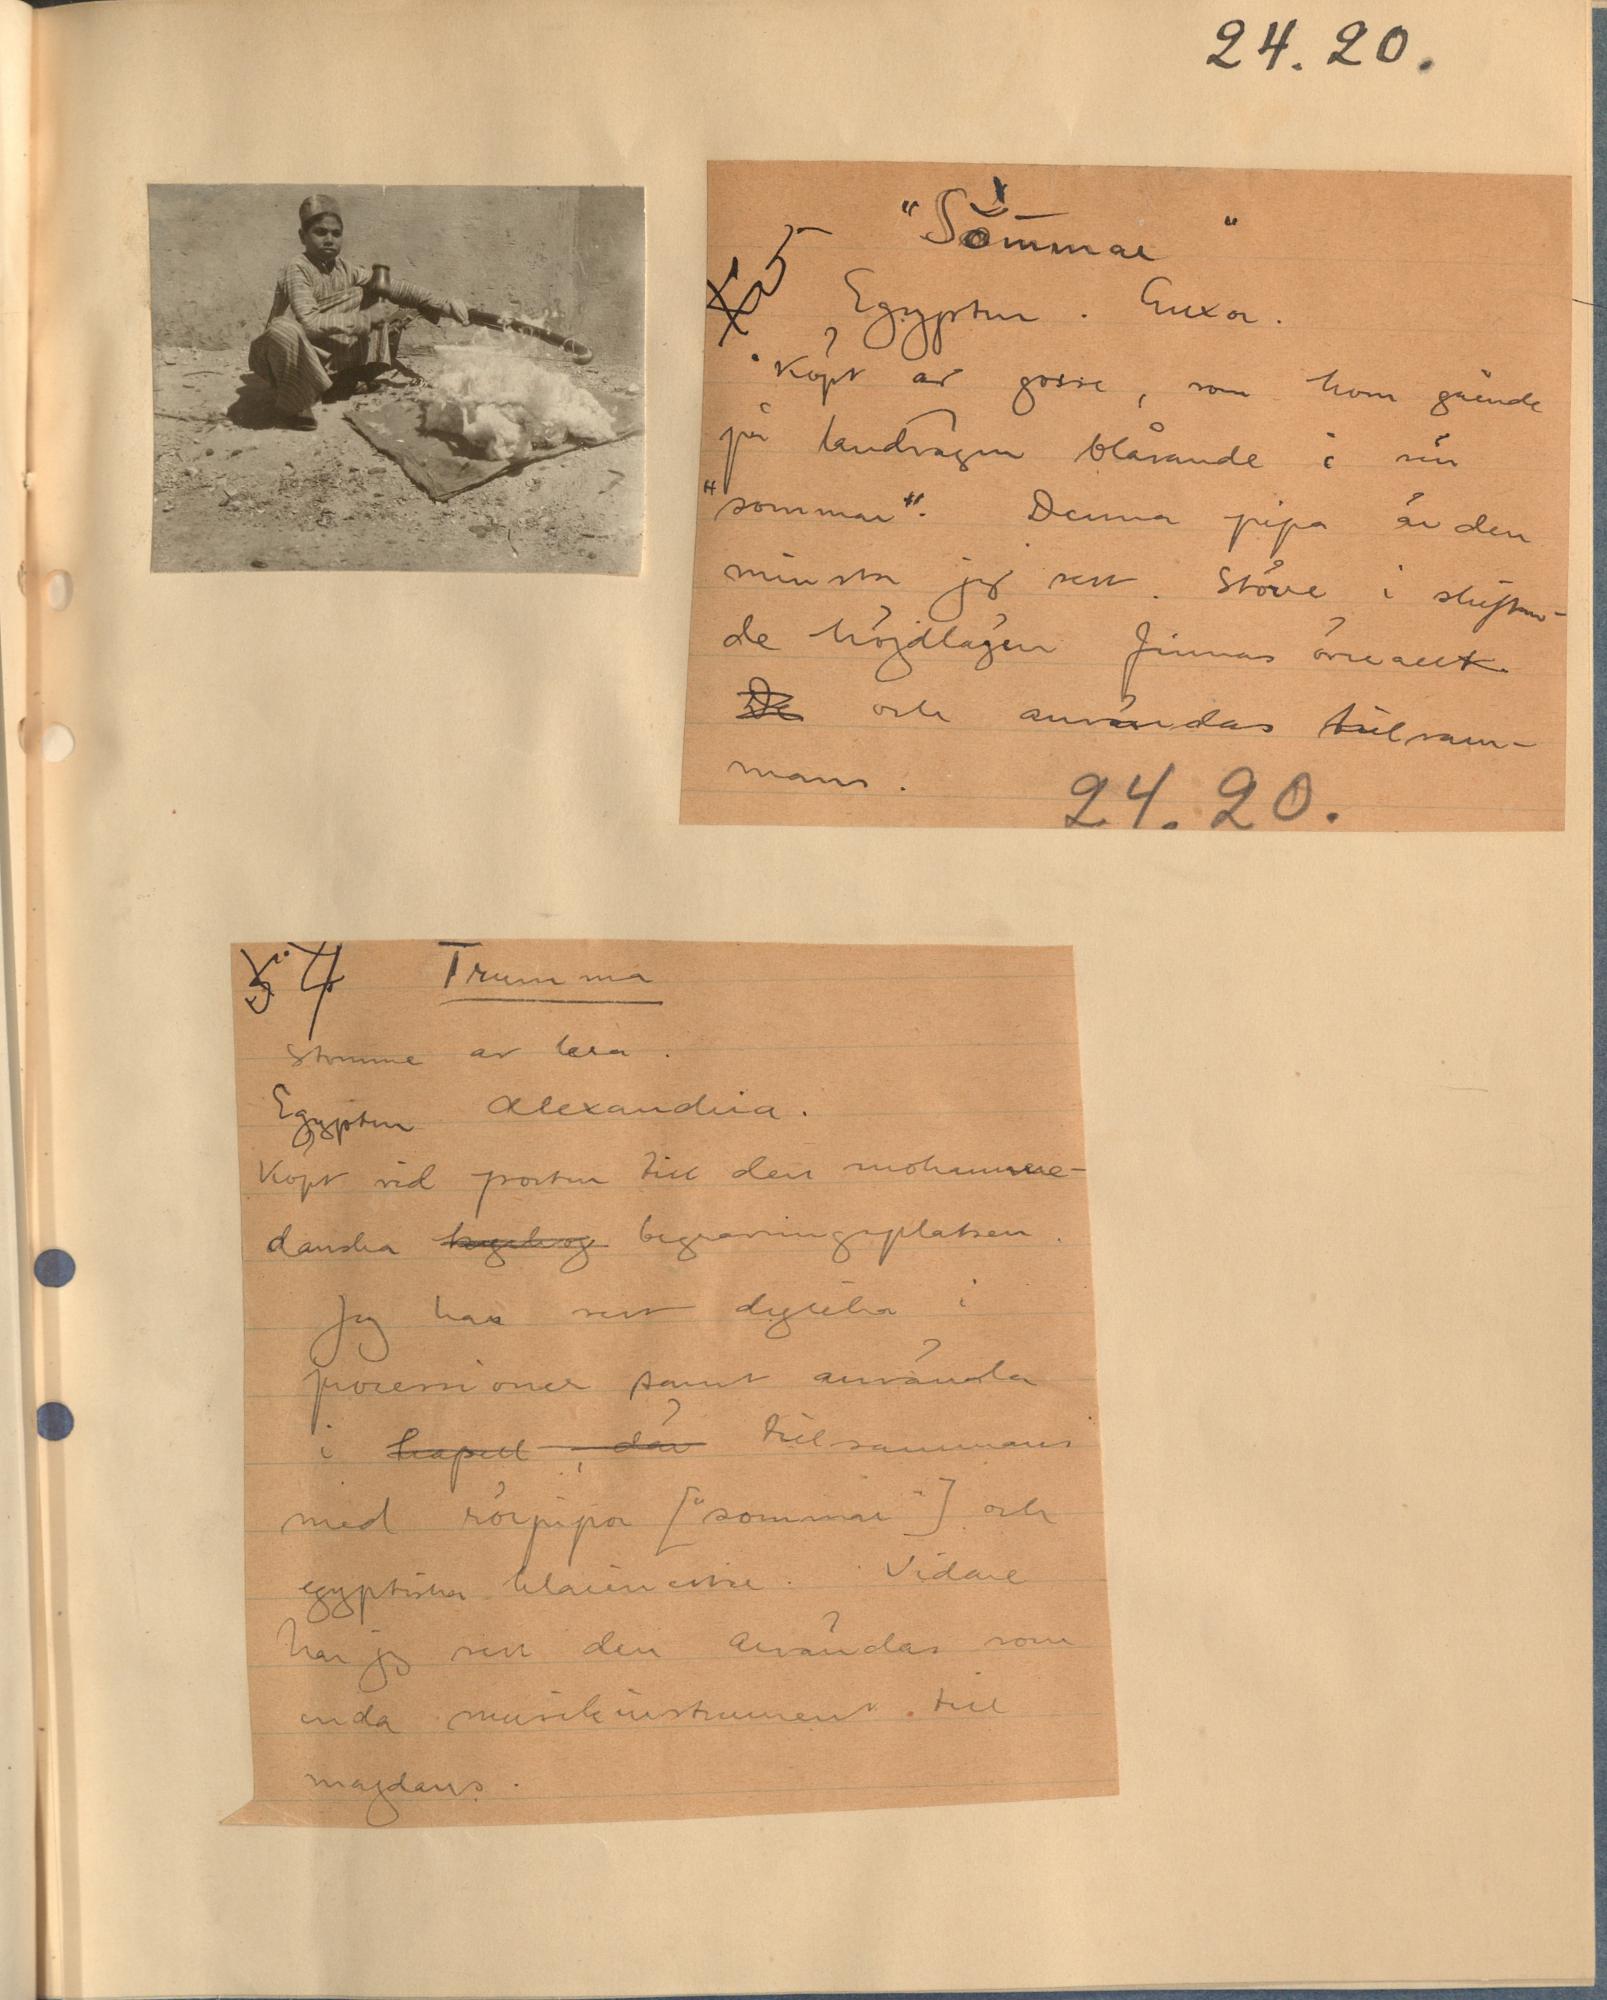 24.20.
"Sommar"
5
Egypten. Luxor.
Köpt av gosse, som kom gående
på landvägen blåsande i sin
"sommar". Denna pipa är den
minsta jag sett. Större i skiftan-
de höjdlägen finnas överallt.
De och användas tillsam-
mans.
24.20.
4 Trumma
Stomme av lera.
Egypten Alexandria.
Köpt vid porten till den mohamme-
danska begravningsplatsen.
Jag har sett dylika i
processioner samt använda
i kapell, där tillsammans
med rörpipor ["sommar"] och
egyptiska klarinetter. Vidare
har jag sett den användas som
enda musikinstrument till
magdans.